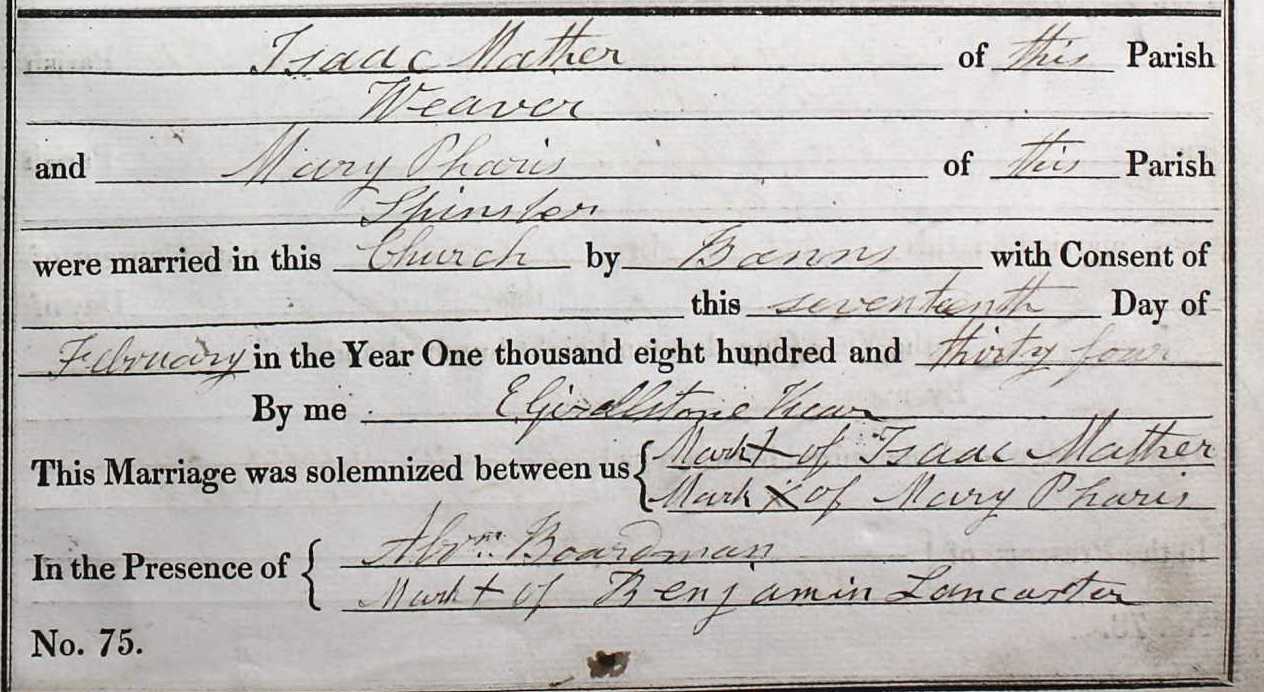 Isaac Mather of this Parish
Weaver
and Mary Pharis of this Parish
Spinster
were married in this Church by Banns with Consent of
this seventeenth Day of
February in the Year One thousand eight hundred and thirty four
By me E Girdlstone Vicar
This Marriage was solemnized between us { Mark + of Isaac Mather
Mark X of Mary Pharis
In the Presence of { Abrm Boardman
Mark + of Benjamin Lancaster
No. 75.